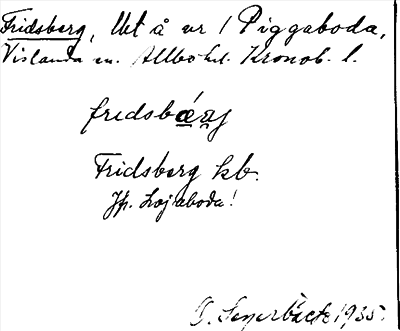 Fridsberg, Ut å vr / Piggaboda,
Vislanda sn. Allbo hd. Kronob. l.
fredsbæ´rj
Fridsberg kb.
Jfr. Lojsaboda!
1935.